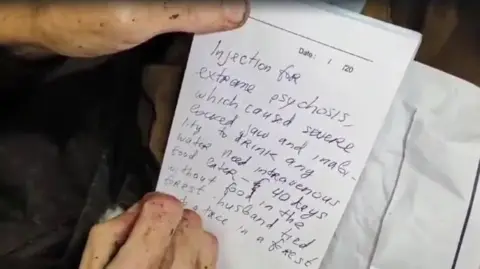 Date: / /20
Injection for
extreme psychosis,
which caused severe
locked jaw and inabi-
lity to drink any
water need intravenous
food enter - 40 days
without food in the
forest, husband tied
to a tree in a forest